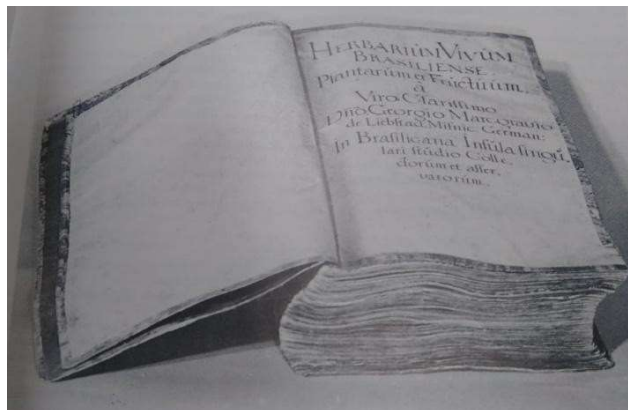 HERBARIÙM VIVÙM
BRASILIENSE.
Plantarùm & Frùctùùm.
a
Viro Clarissimo
Dño. Georgio Marcgraùio
de Liebstad, Misnic German:
In Brasilicana Insùla singù,
lari stùdio Colle,
ctorùm et asser,
vatorùm.